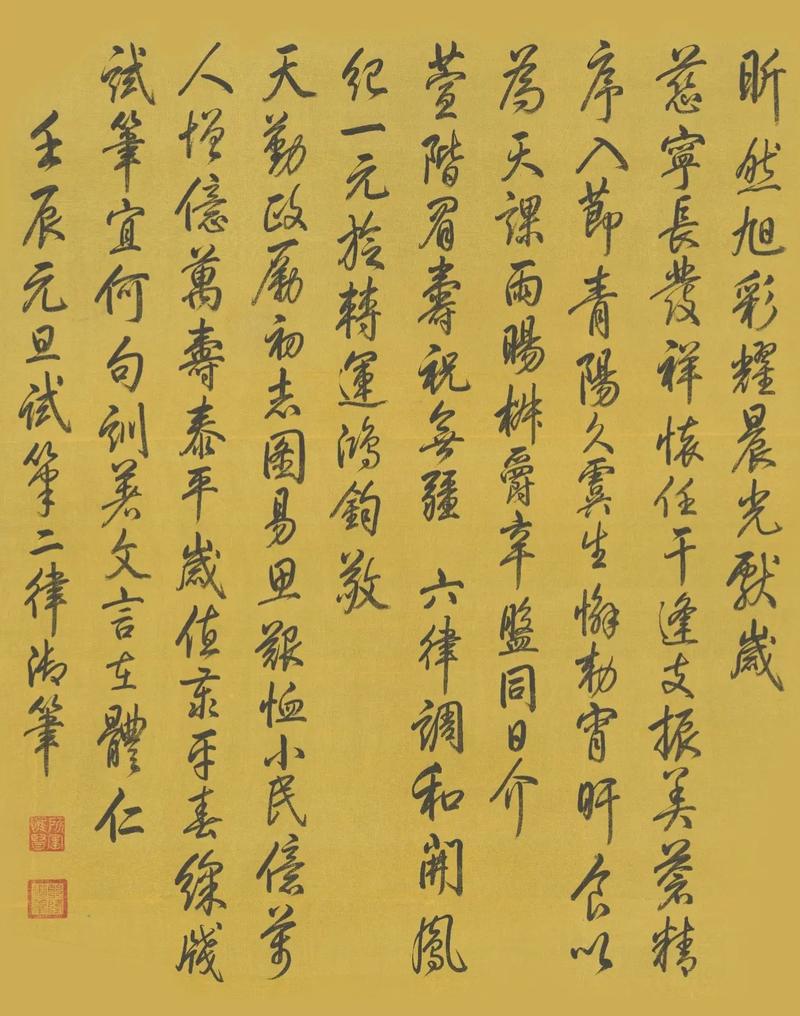 昕然旭彩耀晨光獻歲
慈寧長發祥懷任干逢支振美蒼精
序入節青陽久虞生懈勅宵旰食以
為天課雨暘椒爵辛盤同日介
萱階眉壽祝無疆 六律調和開鳳
紀一元於轉運鴻鈞敬
天勤政勵初志圖易思艱恤小民億萬
人增億萬壽泰平歲值泰平春綵牋
試筆宜何句訓著文言在體仁
壬辰元旦試筆二律御筆
所寶惟賢
乾隆御筆